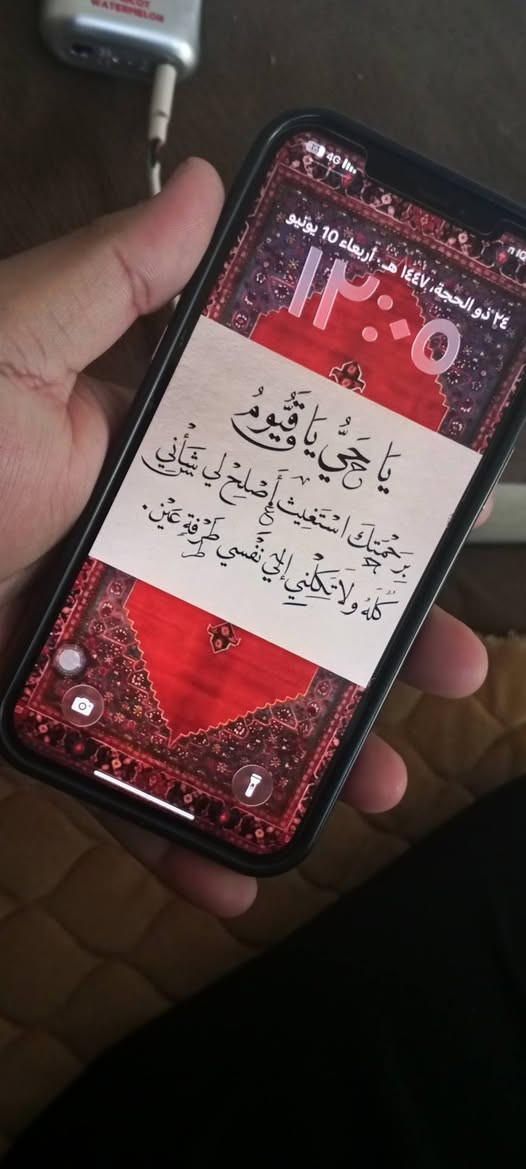 WATERMELON
4G
٢٤ ذو الحجة، ١٤٤٧ هـ. أربعاء 10 يونيو
١٢:٠٥
يَا حَيُّ يَا قَيُّومُ
بِرَحْمَتِكَ اسْتَغِيثُ أَصْلِحْ لِي شَأْنِي
كُلَّهُ ولَا تَكِلْنِي إِلَى نَفْسِي طَرْفَةَ عَيْنٍ.